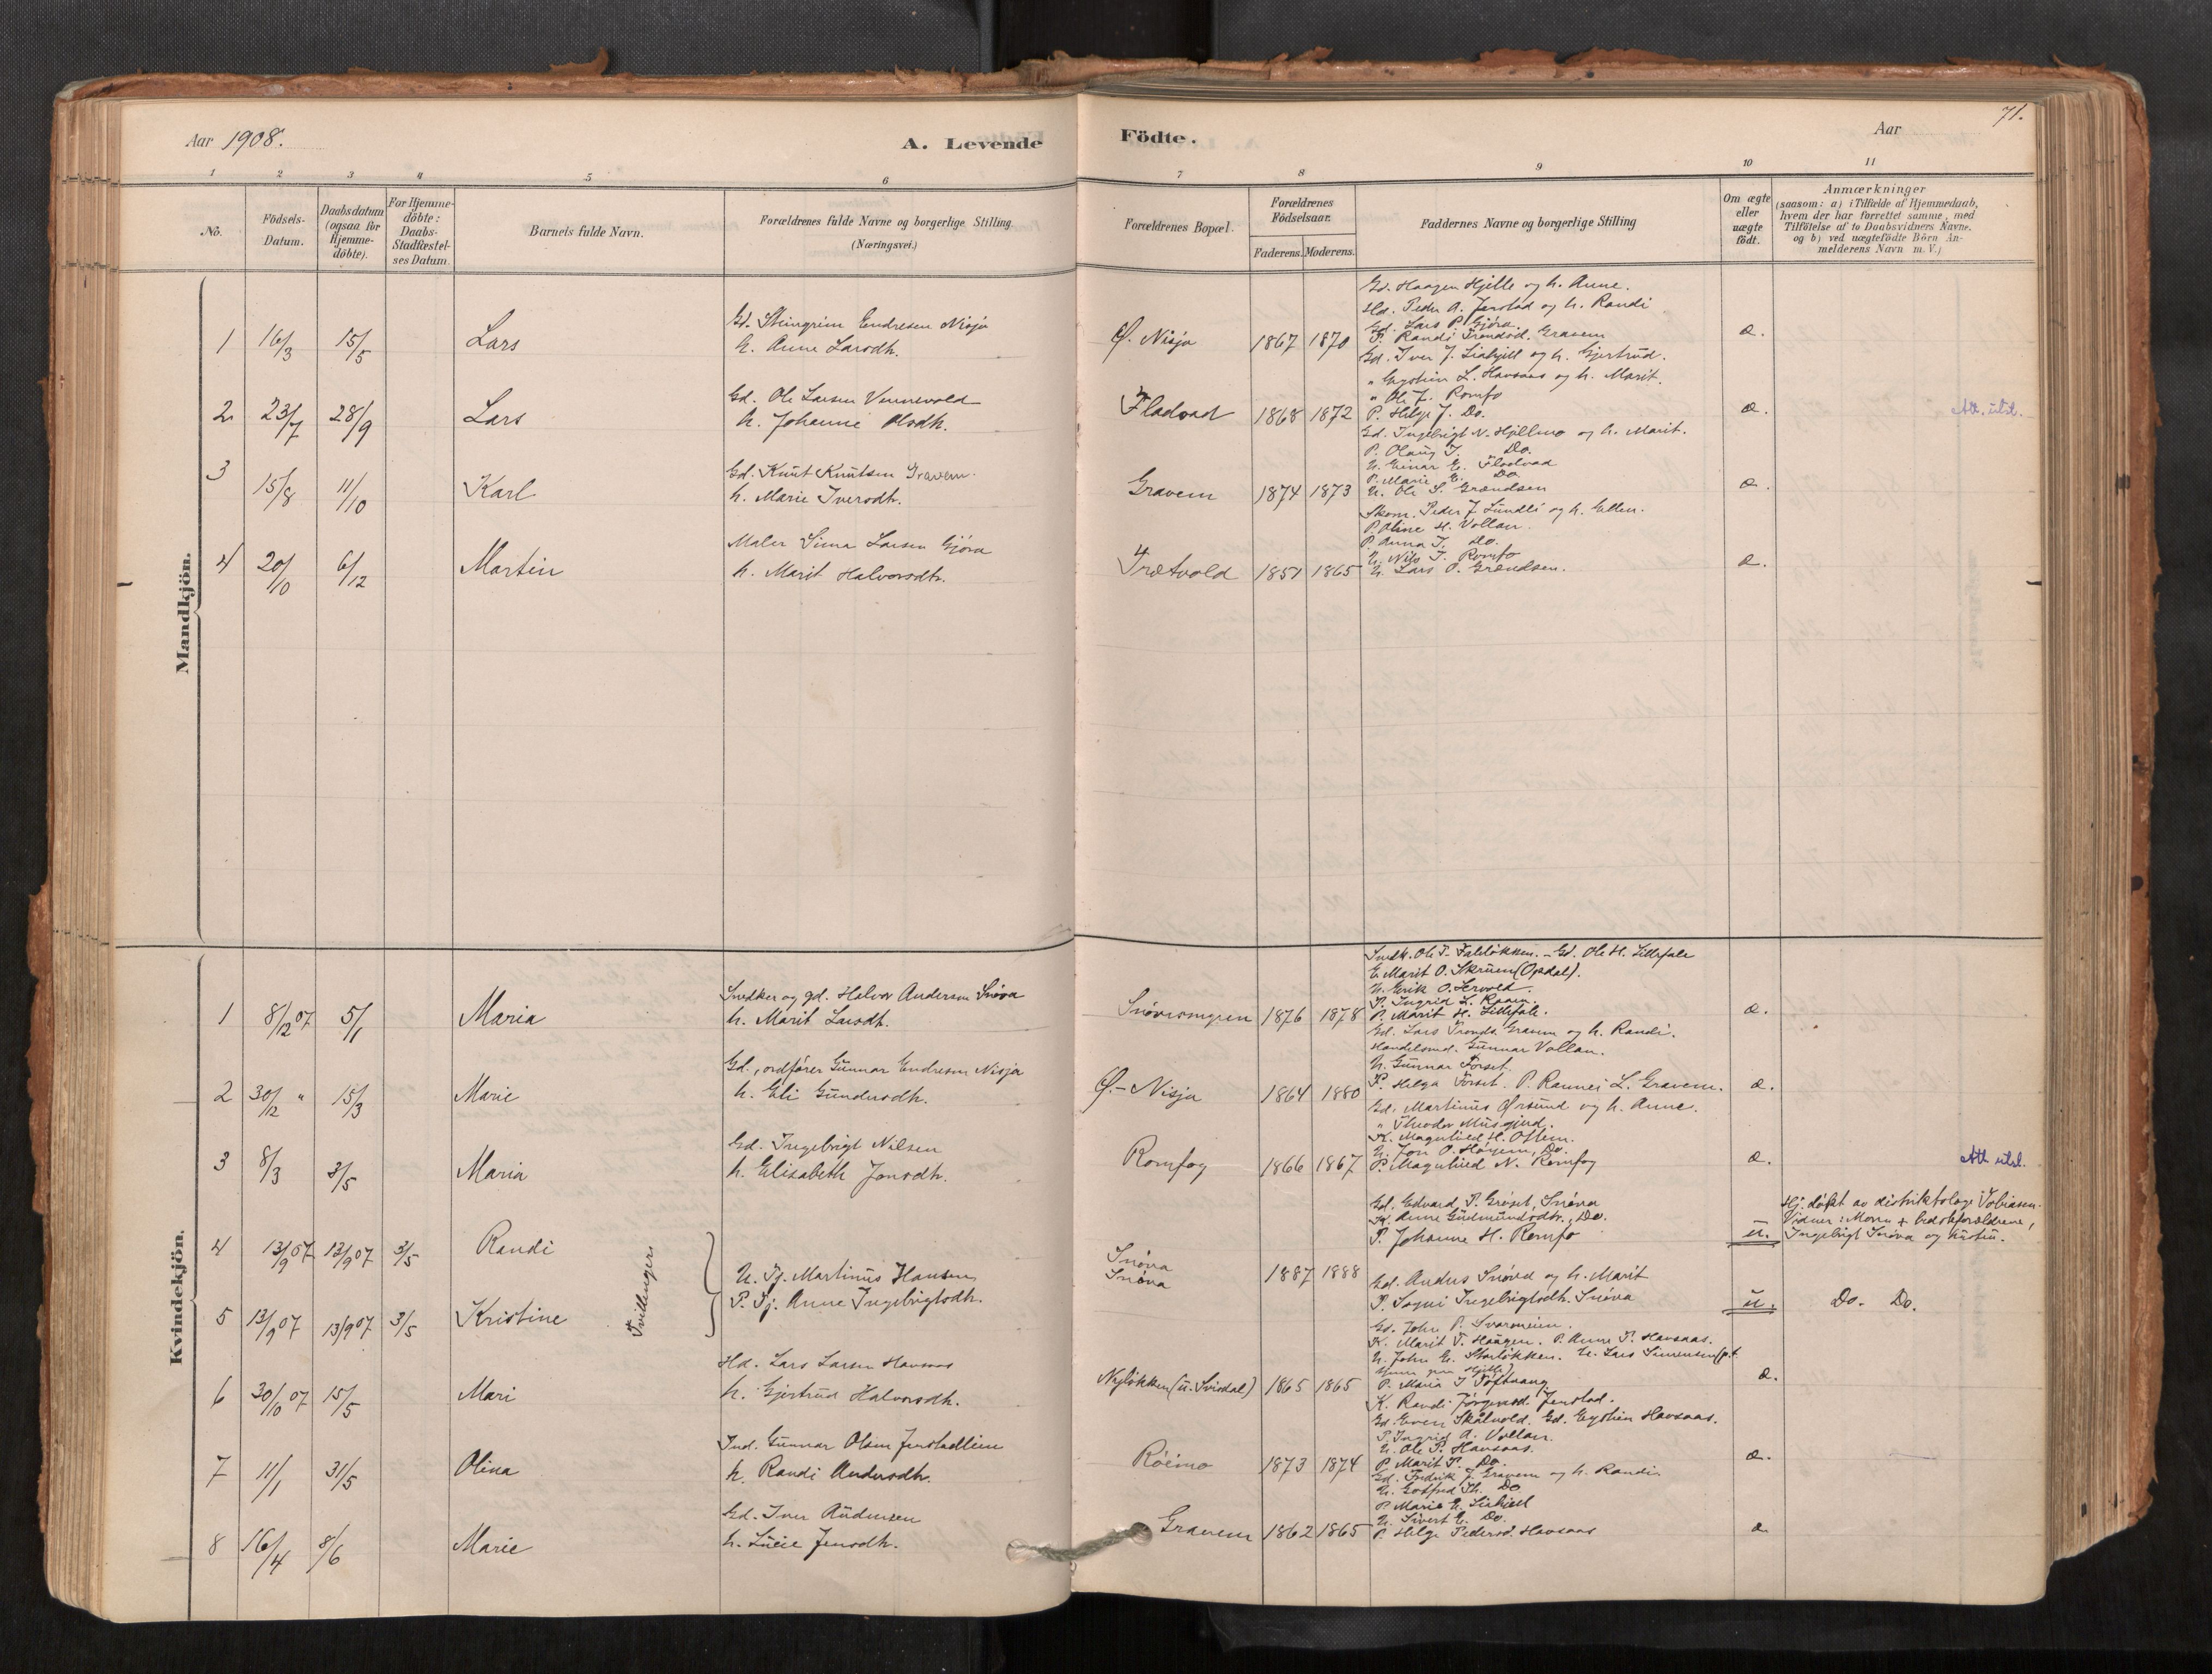 Aar 1908.
A. Levende
Födte.
Aar
71.
1 2 3 4 5 6 7 8 9 10 11
No.
Födsels-
Datum.
Daabsdatum
(ogsaa for
Hjemme-
döbte).
For Hjemme-
döbte:
Daabs-
Stadfæstel-
ses Datum.
Barnets fulde Navn.
Forældrenes fulde Navne og borgerlige Stilling.
(Næringsvei.)
Forældrenes Bopæl.
Forældrenes
Födselsaar.
Faderens. Moderens.
Faddernes Navne og borgerlige Stilling
Om ægte
eller
uægte
födt.
Anmærkninger
(saasom: a) i Tilfælde af Hjemmedaab,
hvem der har forrettet samme, med
Tilföielse af to Daabsvidners Navne.
og b) ved uægtefödte Börn An-
melderens Navn m. V.)
Mandkjön.
1 16/3 15/5 Lars
Gd. Steingrim Endresen Nisja
h. Anne Larsdh.
Ø. Nisja 1867 1870
Gd. Haagen Hjelle og h. Anne.
Hd. Peder A. Jenstad og h. Randi
Gd. Lars P. Gjöra.
P. Randi Trondsd. Gravem
æ.
2 23/7 28/9 Lars
Gd. Ole Larsen Vennevold
h. Johanne Olsdh.
Fladvad 1868 1872
Gd. Iver J. Liahjell og h. Gjertrud.
" Eystein L. Havsaas og h. Marit.
" Ole J. Romfo
P. Helge J. Do.
æ.
Att. utst.
3 15/8 11/10 Karl
Gd. Knut Knutsen Gravem.
h. Marie Iversdh.
Gravem 1874 1873
Gd. Ingebrigt N. Hjellmo og h. Marit.
P. Olaug I. Do.
U. Einar E. Fladvad
P. Marie E. Do.
U. Ole S. Grændsen
æ.
4 20/10 6/12 Martin
Maler Sima Larsen Gjöra
h. Marit Halvorsdtr.
Trætvold 1851 1865
Skom. Peder J. Lundli og h. Ellen.
P. Oline H. Vollan
P. Anna I. Do.
U. Nils I. Romfo
U. Lars O. Grændsen.
æ.
Kvindekjön.
1 8/12 07 5/1 Maria
Snedker og gd. Halvor Andersen Snöva
h. Marit Larsdh.
Snövismyren 1876 1878
Snedk. Ole T. Falelökken. - Gd. Ole H. Lillefale
E. Marit O. Skruen (Opdal).
U. Erik O. Lervold.
P. Ingrid L. Raaen.
P. Marit H. Lillefale.
æ.
2 30/12 " 15/3 Marie
Gd., ordförer Gunnar Endresen Nisja
h. Eli Gundersdh.
Ø.- Nisja 1864 1880
Gd. Lars Tronds. Gravem og h. Randi.
Handelsmd. Gunnar Vollan.
U. Gunnar Forset.
P. Helga Forset. P. Rannei L. Gravem.
æ.
3 8/3 3/5 Maria
Gd. Ingebrigt Nilsen
h. Elisabeth Jonsdh.
Romfog 1866 1867
Gd. Martinus Ørsund og h. Anne.
" Theodor Musgjerd.
K. Magnhild H. Ottem.
U. Jon O. Höyem, Do.
P. Magnhild N. Romfog
æ.
Att utst.
4 13/9 07 13/9 07 3/5 Randi
Tvillinger
U. Tj. Martinus Hansen
P. Tj. Anne Ingebrigtsdh.
Snöva
Snöva
1887 1888
Gd. Edvard P. Gröset, Snöva
K. Anne Gudmundsdtr., Do.
P. Johanne H. Romfo
u.
Hj. döbt av distriktslæge Tobiasen.
Vidner: Moren + bedsteforældrene,
Ingebrigt Snöva og hustru.
5 13/9 07 13/9 07 3/5 Kristine
Gd. Anders Snöva og h. Marit
P. Sogni Ingebrigtsdh. Snöva
u.
Do. Do.
6 30/10 07 15/5 Mari
Hd. Lars Larsen Havsaas
h. Gjertrud Halvorsdh.
Nylökken (u. Svisdal) 1865 1865
Gd. John P. Svarveien.
K. Marit T. Haugen. P. Anne P. Havsaas.
U. John E. Storlökken. U. Lars Simensen (p.t.
P. Maria I Toftvang
æ.
7 11/1 31/5 Olina
Ind. Gunnar Olsen Jenstadlien
h. Randi Andersdh.
Röeimo 1873 1874
K. Randi Jörgensd. Jenstad.
Gd. Even Skålvold. Gd. Eystein Havsaas.
P. Ingrid A. Vollan.
U. Ole P. Havsaas.
P. Marit P. Do.
æ.
8 16/4 8/6 Marie
Gd. Iver Andersen
h. Lucie Jensdh.
Gravem 1862 1865
Gd. Fredrik J. Gravem og h. Randi.
U. Gotfred Th. Do
P. Marie E. Liahjell
U. Sivert E. Do.
P. Helge Pedersd. Havsaas
æ.